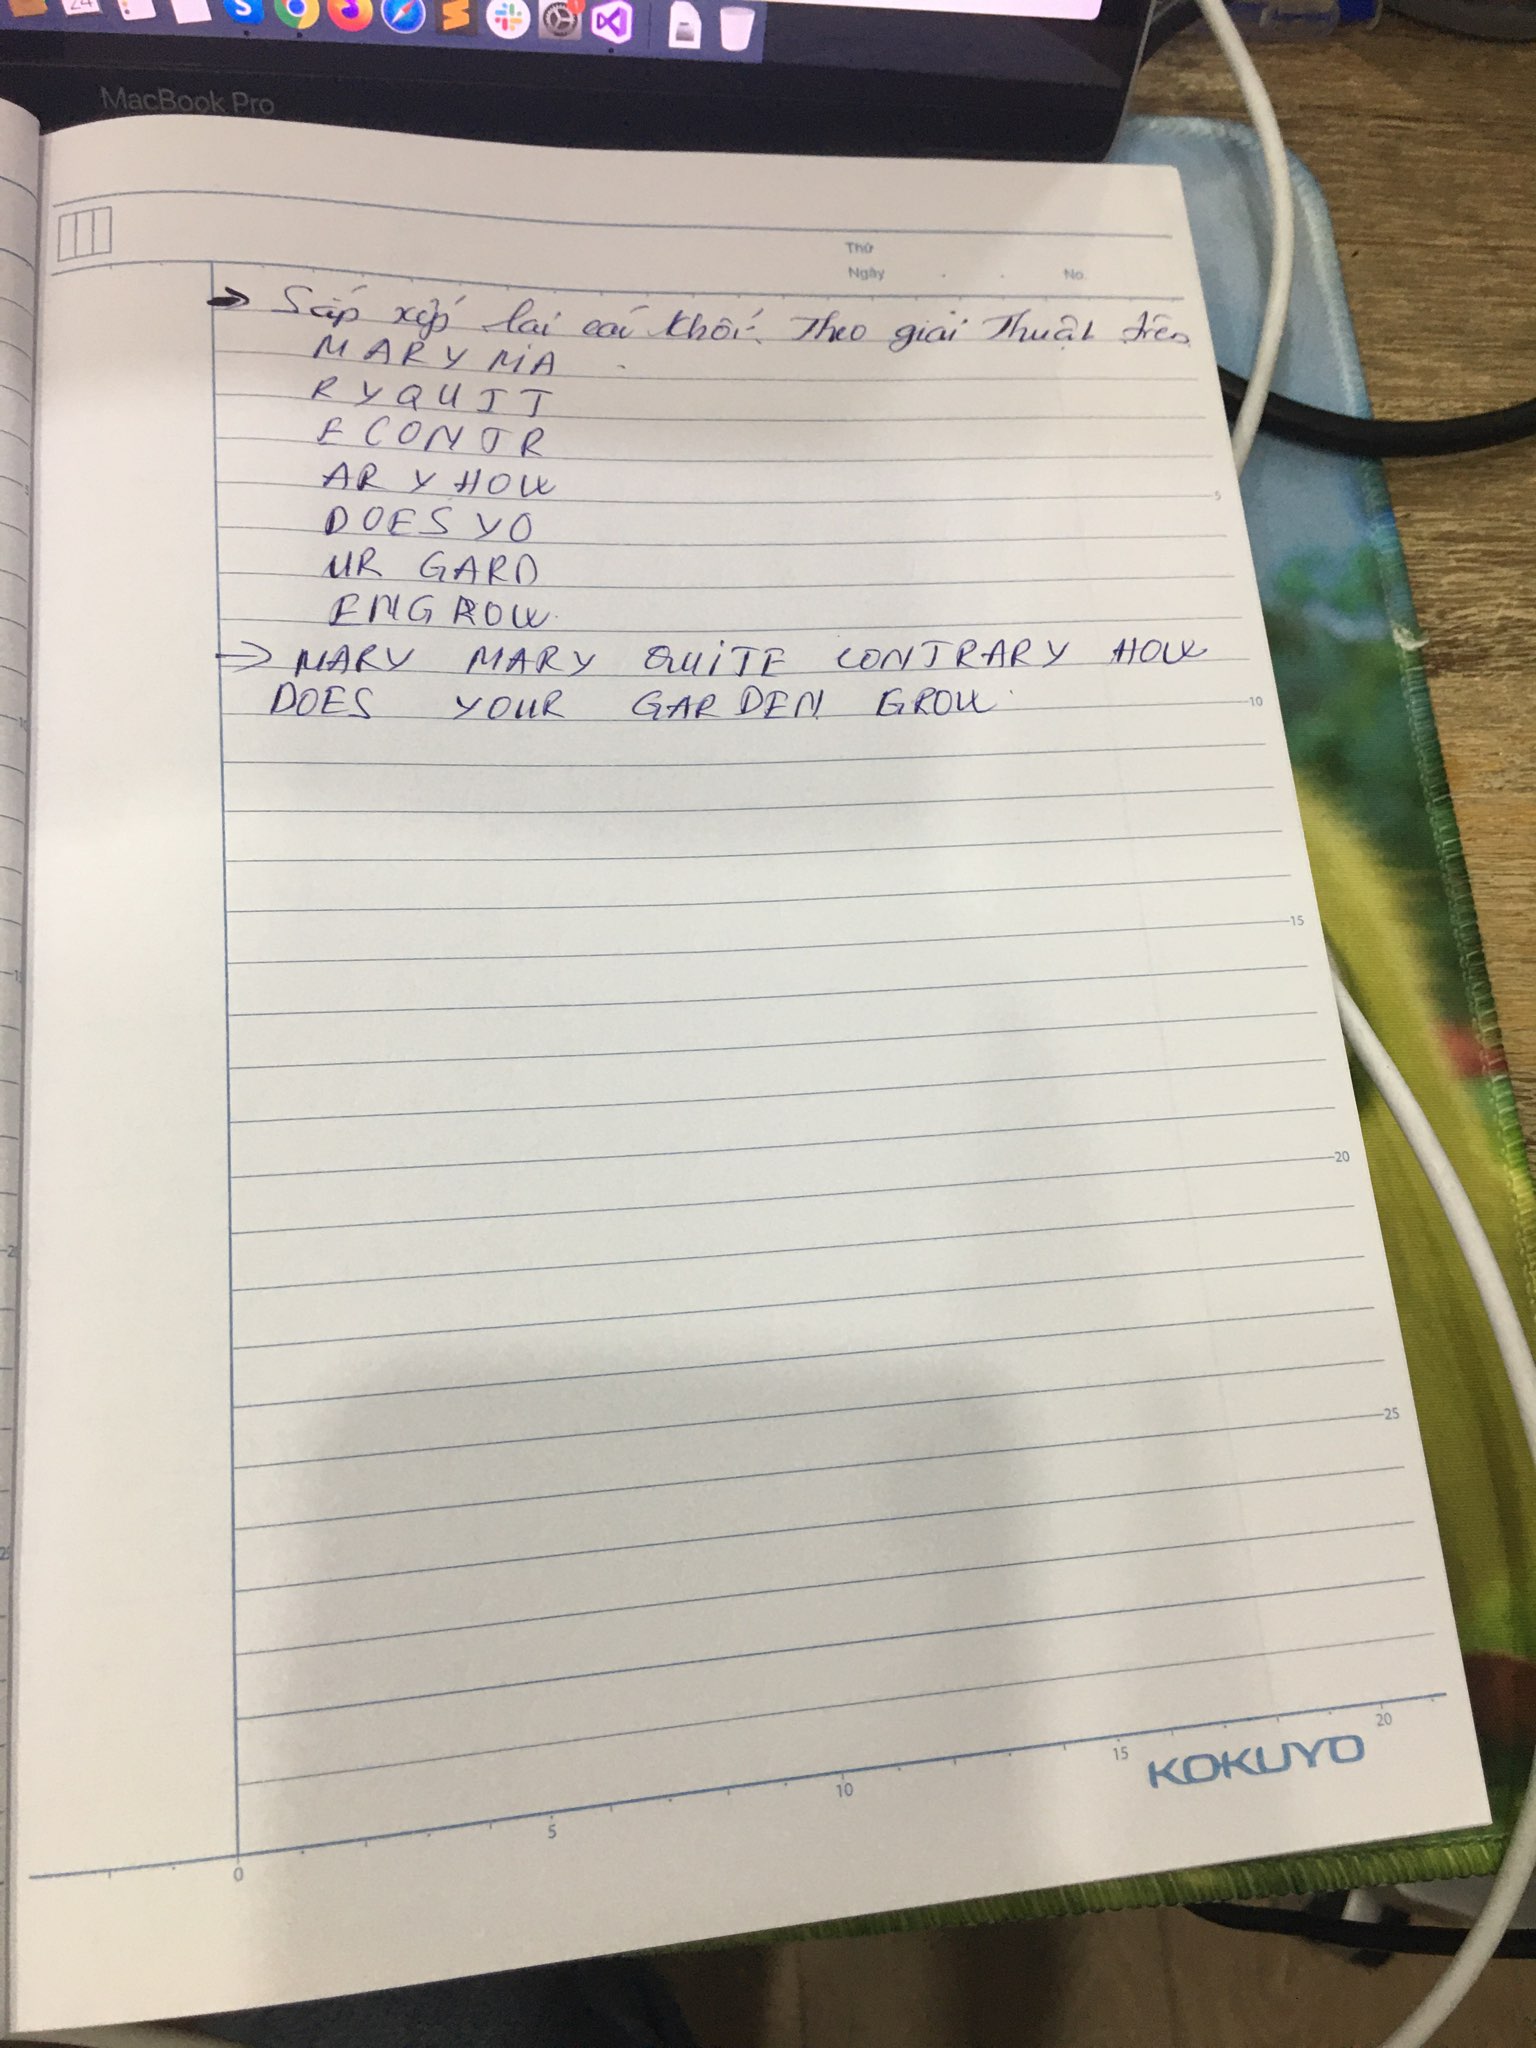 24
MacBook Pro
Thứ
Ngày . . No.
→ Sắp xếp lại các khối. Theo giải Thuật trên
MARYMA
RYQUIT
ECONTR
ARYHOW
DOESYO
UR GARD
ENGROW.
→ MARY MARY QUITE CONTRARY HOW
DOES YOUR GARDEN GROW.
5
10
15
20
25
0 5 10 15 20
KOKUYO